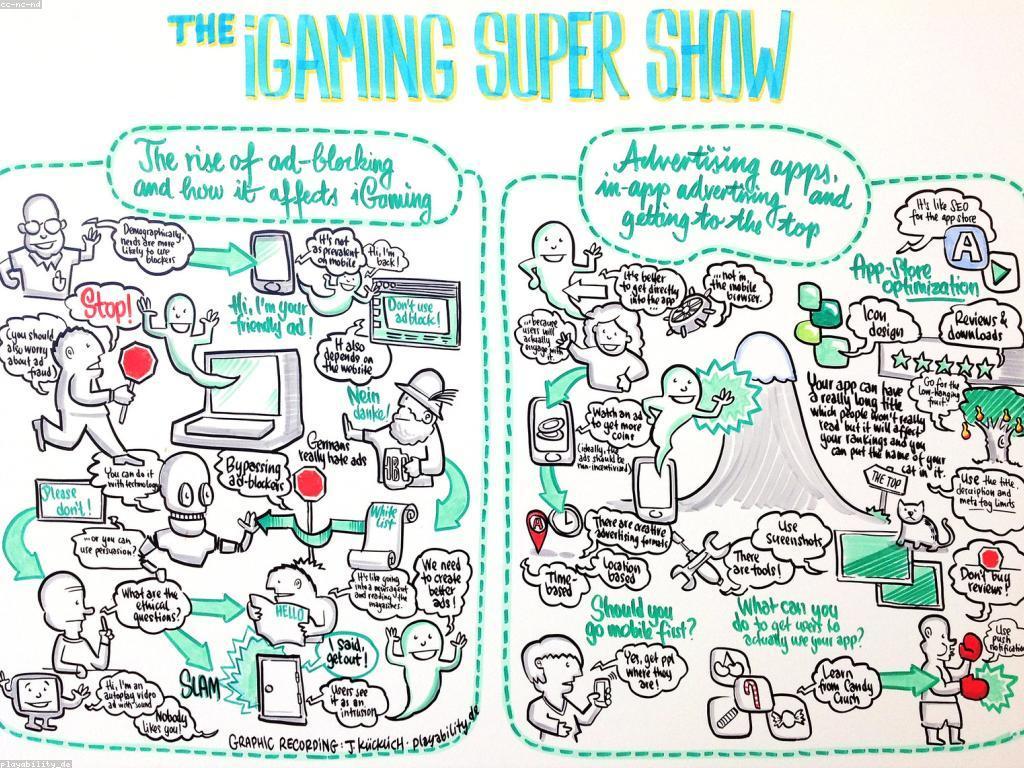 cc-nc-nd
THE iGAMING SUPER SHOW
The rise of ad-blocking
and how it affects iGaming
Demographically,
nerds are more
likely to use
blockers
It's not
as prevalent
on mobile
Hi, I'm
back!
Stop!
Hi, I'm your
friendly ad!
Don't use
adblock!
(you should
also worry
about ad
fraud
It also
depends on
the website
Nein
danke!
Germans
really hate ads
You can do it
with technology
Bypassing
ad-blockers
Please
don't!
...or you can
use persuasion?
White
list
It's like going
into a newsagent
and reading the
magazines
We need
to create
better
ads!
What are the
ethical
questions?
HELLO
Said,
get out!
SLAM
Users see
it as an
intrusion
Hi, I'm an
autoplay video
ad with sound
Nobody
likes you!
GRAPHIC RECORDING: J. KÜCKLICH · playability.de
Advertising apps,
in-app advertising and
getting to the top
It's like SEO
for the app store
A
App-Store
optimization
It's better
to get directly
into the app
...not in
the mobile
browser.
...because
users will
actually
engage with
it.
Icon
design
Reviews &
downloads
Go for the
low-hanging
fruit!
Your app can have
a really long title
which people won't really
read but it will affect
your rankings and you
can put the name of your
cat in it.
Watch an ad
to get more
coins
(ideally, the
ads should be
non-incentivized)
THE TOP
Use the title,
description and
meta tag limits
A
There are creative
advertising formats
Time-
based
Location
based
There
are tools!
Use
screenshots
Don't buy
reviews!
Should you
go mobile-first?
What can you
do to get users to
actually use your app?
Use
push
notification
Yes, get ppl
where they
are!
Learn
from Candy
Crush
playability_de